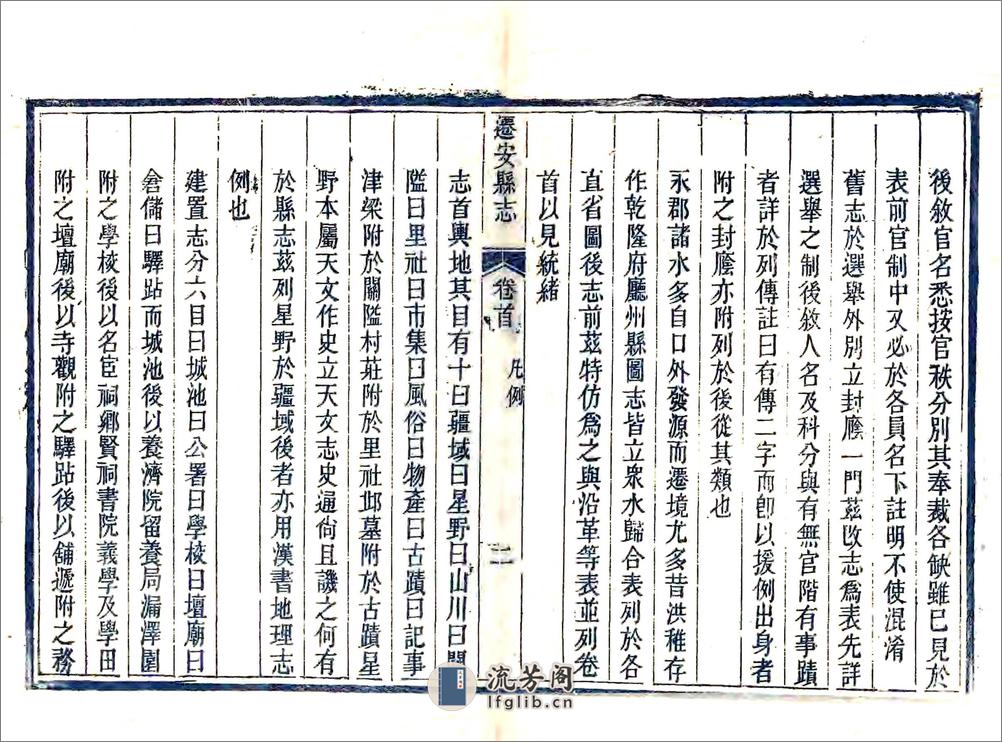 後敘官名悉按官秩分別其奉裁各缺雖已見於
表前官制中又必於各員名下註明不使混淆
舊志於選舉外別立封廕一門茲改志為表先詳
選舉之制後敘人名及科分與有無官階有事蹟
者詳於列傳註曰有傳二字而卽以援例出身者
附之封廕亦附列於後從其類也
永郡諸水多自口外發源而遷境尤多昔洪稚存
作乾隆府廳州縣圖志皆立衆水歸合表列於各
直省圖後志前茲特仿為之與沿革等表並列卷
首以見統緒
遷安縣志 卷首 凡例 二
志首輿地其目有十曰疆域曰星野曰山川曰關
隘曰里社曰市集曰風俗曰物產曰古蹟曰記事
津梁附於關隘村莊附於里社邱墓附於古蹟星
野本屬天文作史立天文志史通尙且譏之何有
於縣志茲列星野於疆域後者亦用漢書地理志
例也
建置志分六目曰城池曰公署曰學校曰壇廟曰
倉儲曰驛站而城池後以養濟院留養局漏澤園
附之學校後以名宦祠鄉賢祠書院義學及學田
附之壇廟後以寺觀附之驛站後以舖遞附之務
流芳阁
lfglib.cn